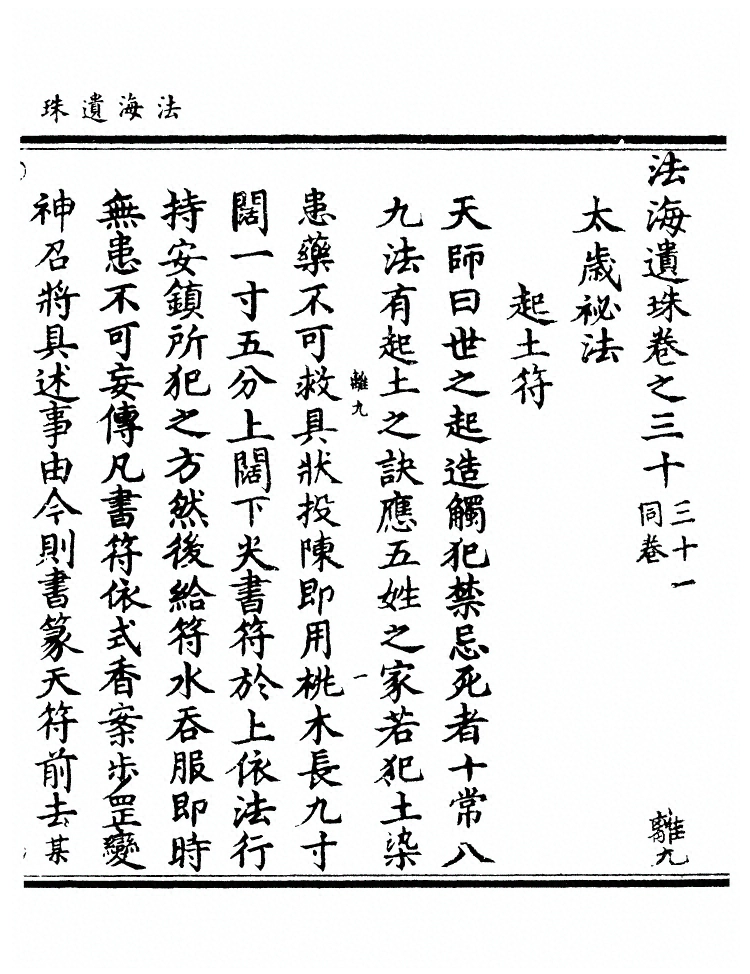 法海遺珠
法海遺珠卷之三十 三十一同卷
離九
太歲祕法
起土符
天師曰世之起造觸犯禁忌死者十常八
九法有起土之訣應五姓之家若犯土染
離九
一
患藥不可救具狀投陳即用桃木長九寸
闊一寸五分上闊下尖書符於上依法行
持安鎮所犯之方然後給符水吞服即時
無患不可妄傳凡書符依式香案步罡變
神召將具述事由今則書篆天符前去某